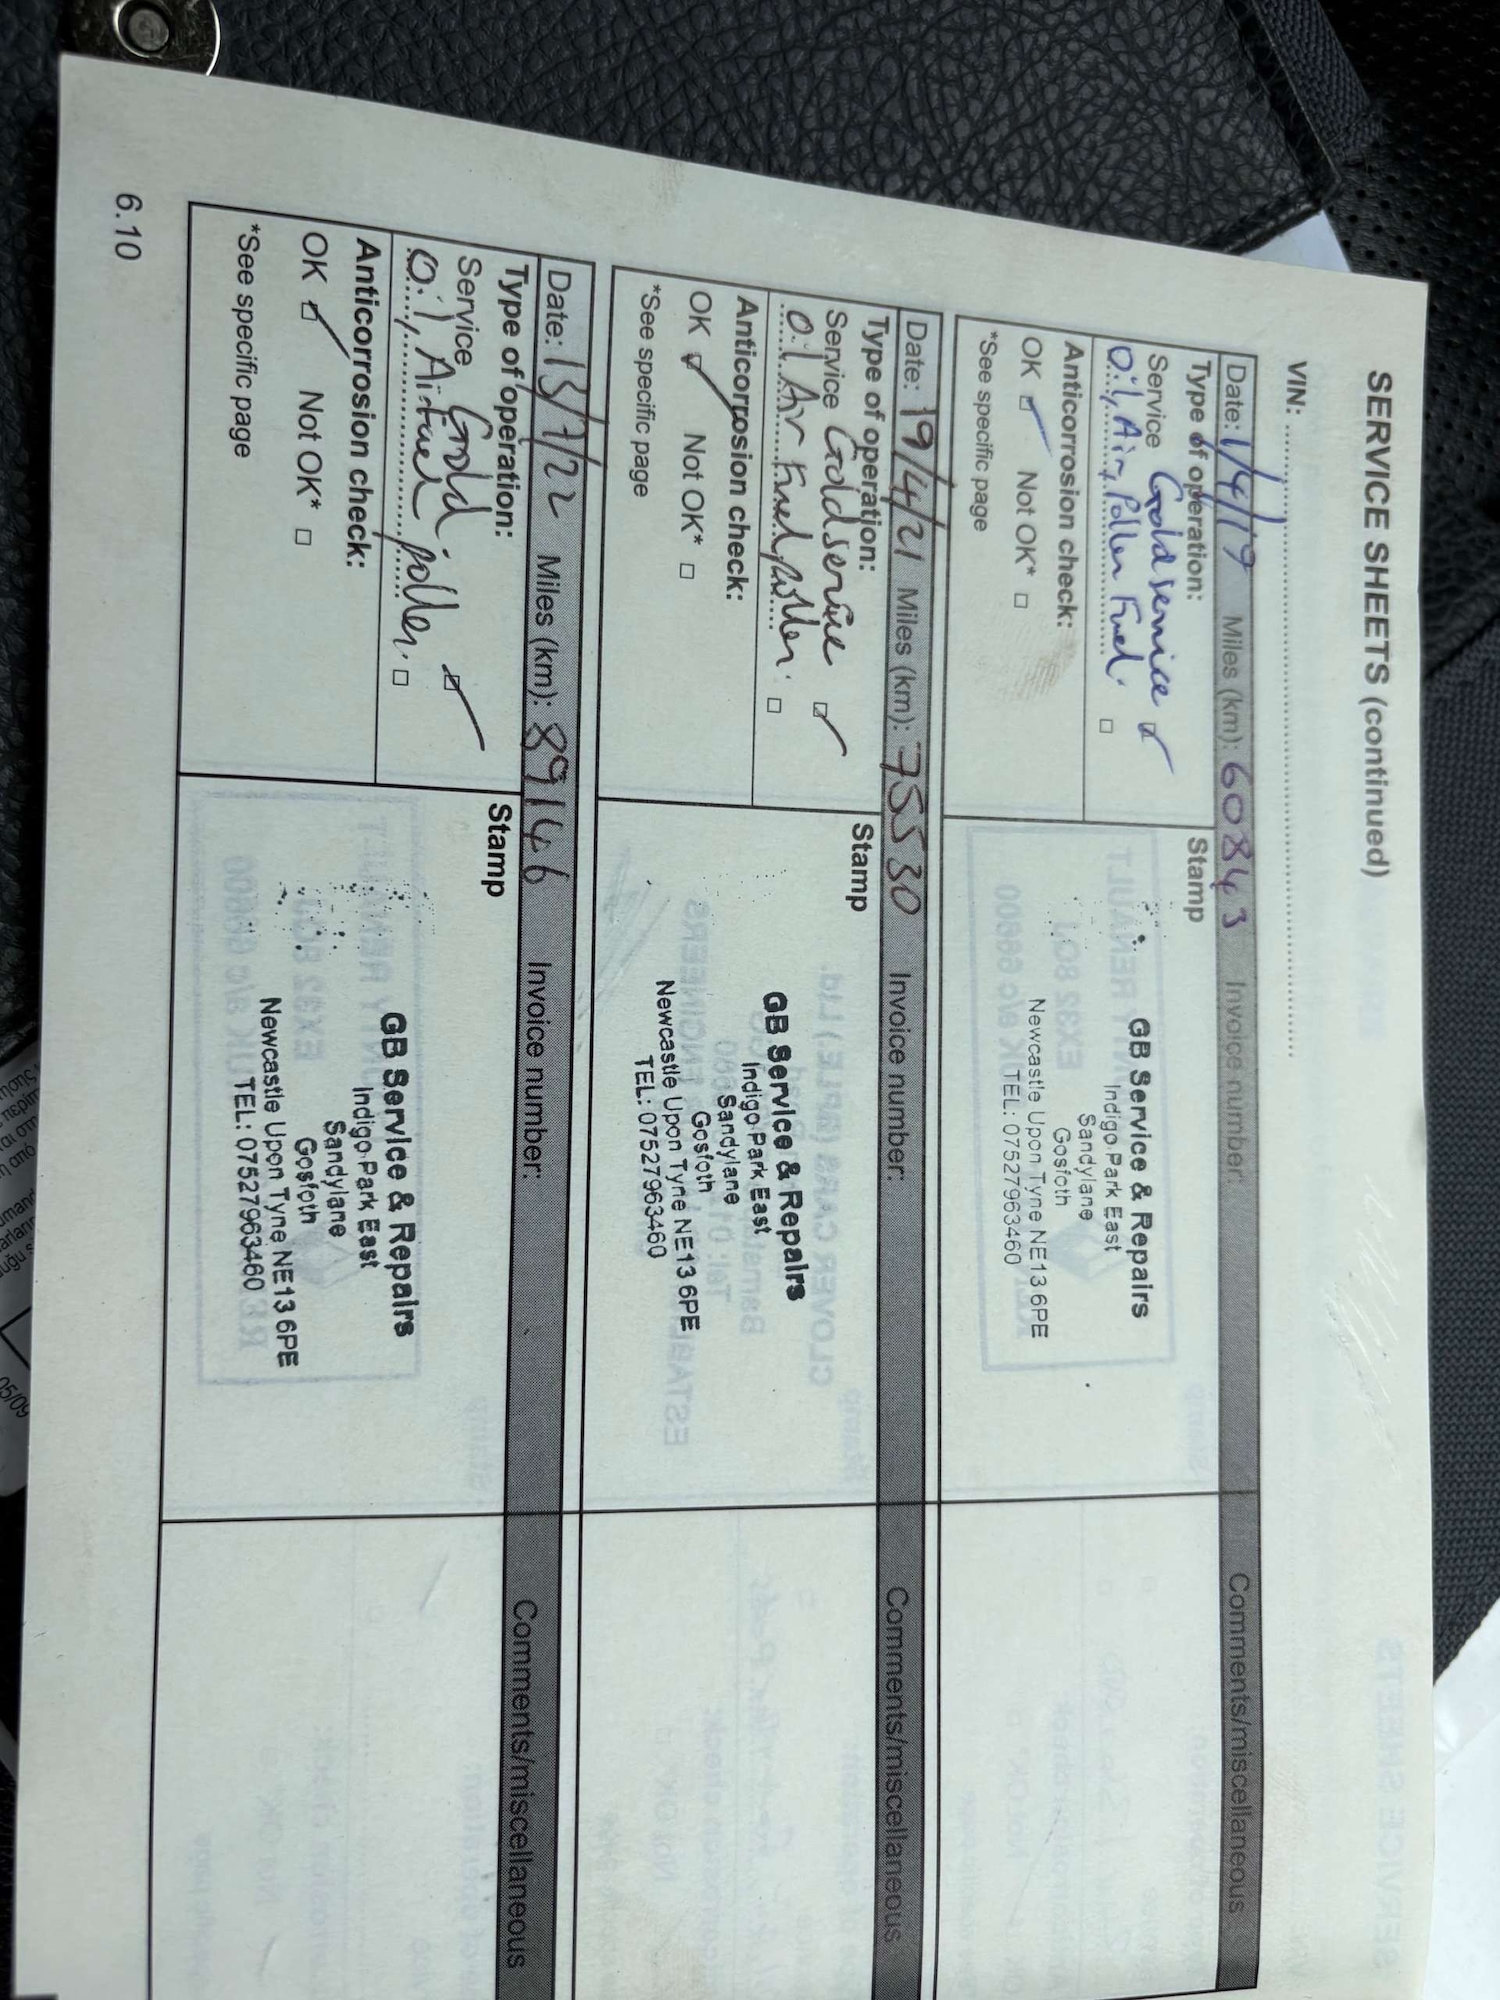 SERVICE SHEETS (continued)
VIN: ................................................
Date: 1/4/19 Miles (km): 60843 Invoice number: Comments/miscellaneous
Type of operation:
Stamp
Service Gold service ☑
Oil, Air, Pollen Fuel. □
Anticorrosion check:
OK ☑ Not OK* □
*See specific page
GB Service & Repairs
Indigo Park East
Sandylane
Gosfoth
Newcastle Upon Tyne NE13 6PE
TEL: 07527963460
Date: 19/4/21 Miles (km): 75530 Invoice number: Comments/miscellaneous
Type of operation:
Stamp
Service Gold service ☑
Oil Air Fuel, pollen. □
Anticorrosion check:
OK ☑ Not OK* □
*See specific page
GB Service & Repairs
Indigo Park East
Sandylane
Gosfoth
Newcastle Upon Tyne NE13 6PE
TEL: 07527963460
Date: 13/7/22 Miles (km): 89146 Invoice number: Comments/miscellaneous
Type of operation:
Stamp
Service Gold. ☑
Oil, Air Fuel pollen. □
Anticorrosion check:
OK ☑ Not OK* □
*See specific page
GB Service & Repairs
Indigo Park East
Sandylane
Gosfoth
Newcastle Upon Tyne NE13 6PE
TEL: 07527963460
6.10